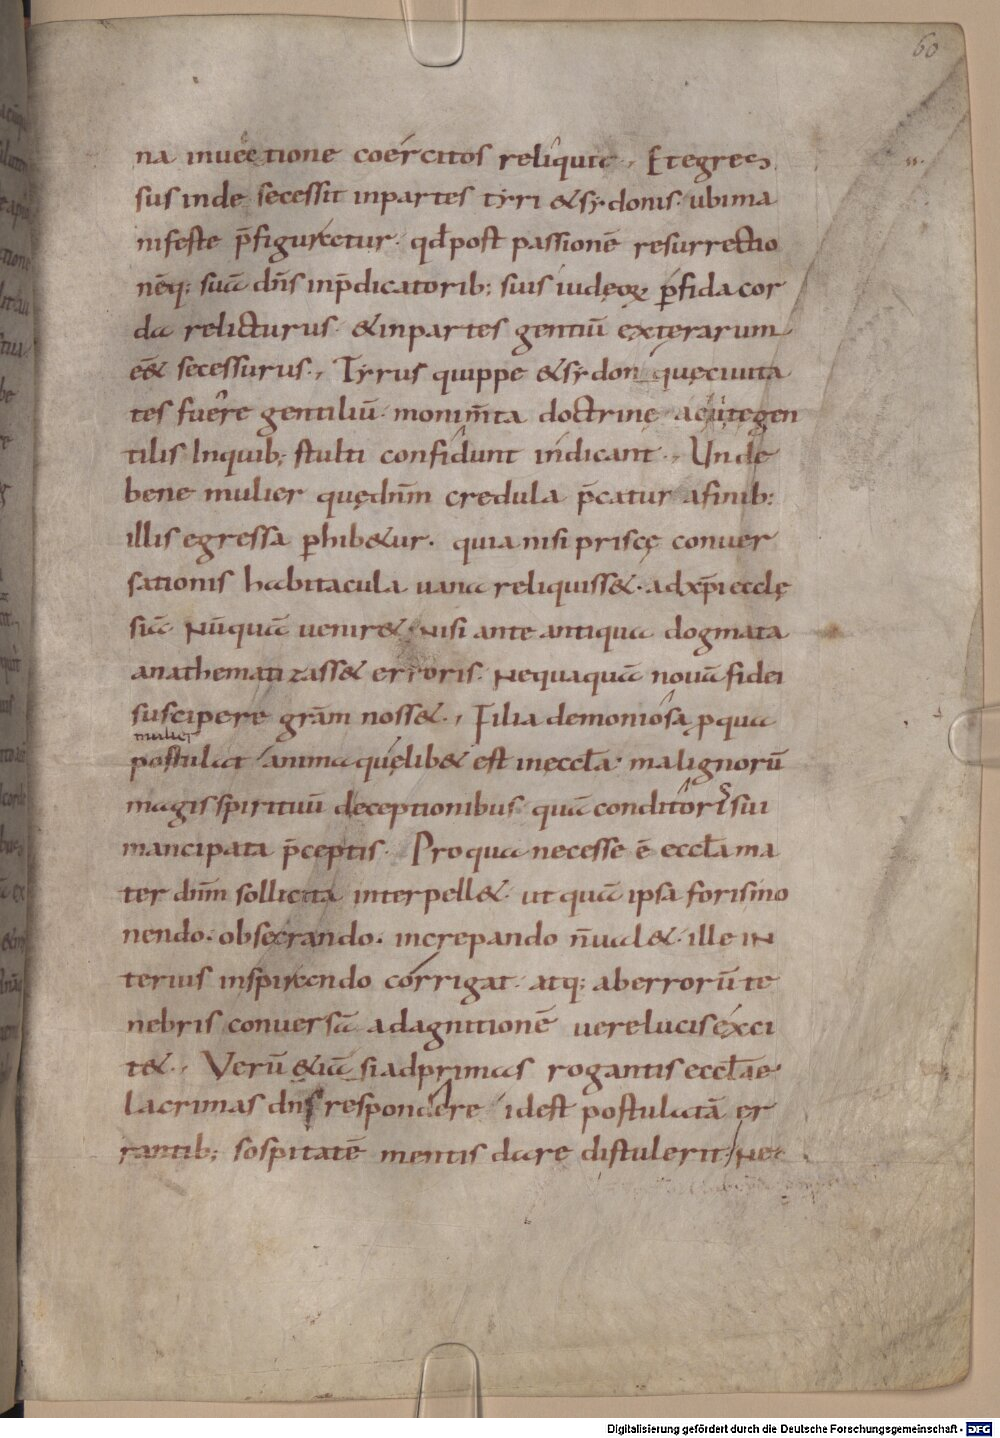 60
na inuectione coercitos reliquit ., Et egres
sus inde secessit inpartes tyri &sydonis· ubima
nifeste p̄figuraretur· qđ post passionē resurrectio
nēq; suā dn̄s inp̄dicatorib; suis iudęoꝝ ꝑfida cor
da relicturus· &inpartes gentiū exterarum
ēē& secessurus., Tyrus quippe &sydon quęciuita
tes fuere gentiliū· monim̄ta doctrinę acuitęgen
tilis Inquib; stulti confidunt indicant ., Unde
bene mulier quędn̄m credula p̄catur afinib;
illis egressa ꝑhib&ur· quia nisi priscę conuer
sationis habitacula uana reliquiss&· adxp̄i ecclę
siā Nūquā uenir&· Nisi ante antiqua dogmata
anathematizass& erroris· Nequaquā nouā fidei
suscipere grām noss& ., Filia demoniosa ꝓqua
mulier
postulat anima quęlib& est inęccła· malignorū
magis spirituū deceptionibus quā conditoris sui
mancipata p̄ceptis· Proqua necesse ē eccła ma
ter dn̄m sollicita interpell&· ut quā ipsa foris mo
nendo· obsecrando· increpando n̄ual&· ille in
terius inspirando corrigat· atq; aberrorū te
nebris conuersā adagnitionē uerelucis exci
t& ., Verū &iā siadprimas rogantis ecclae
lacrimas dn̄s respondere idest postulatā er
rantib; sospitatē mentis dare distulerit· Nec
Digitalisierung gefördert durch die Deutsche Forschungsgemeinschaft - DFG